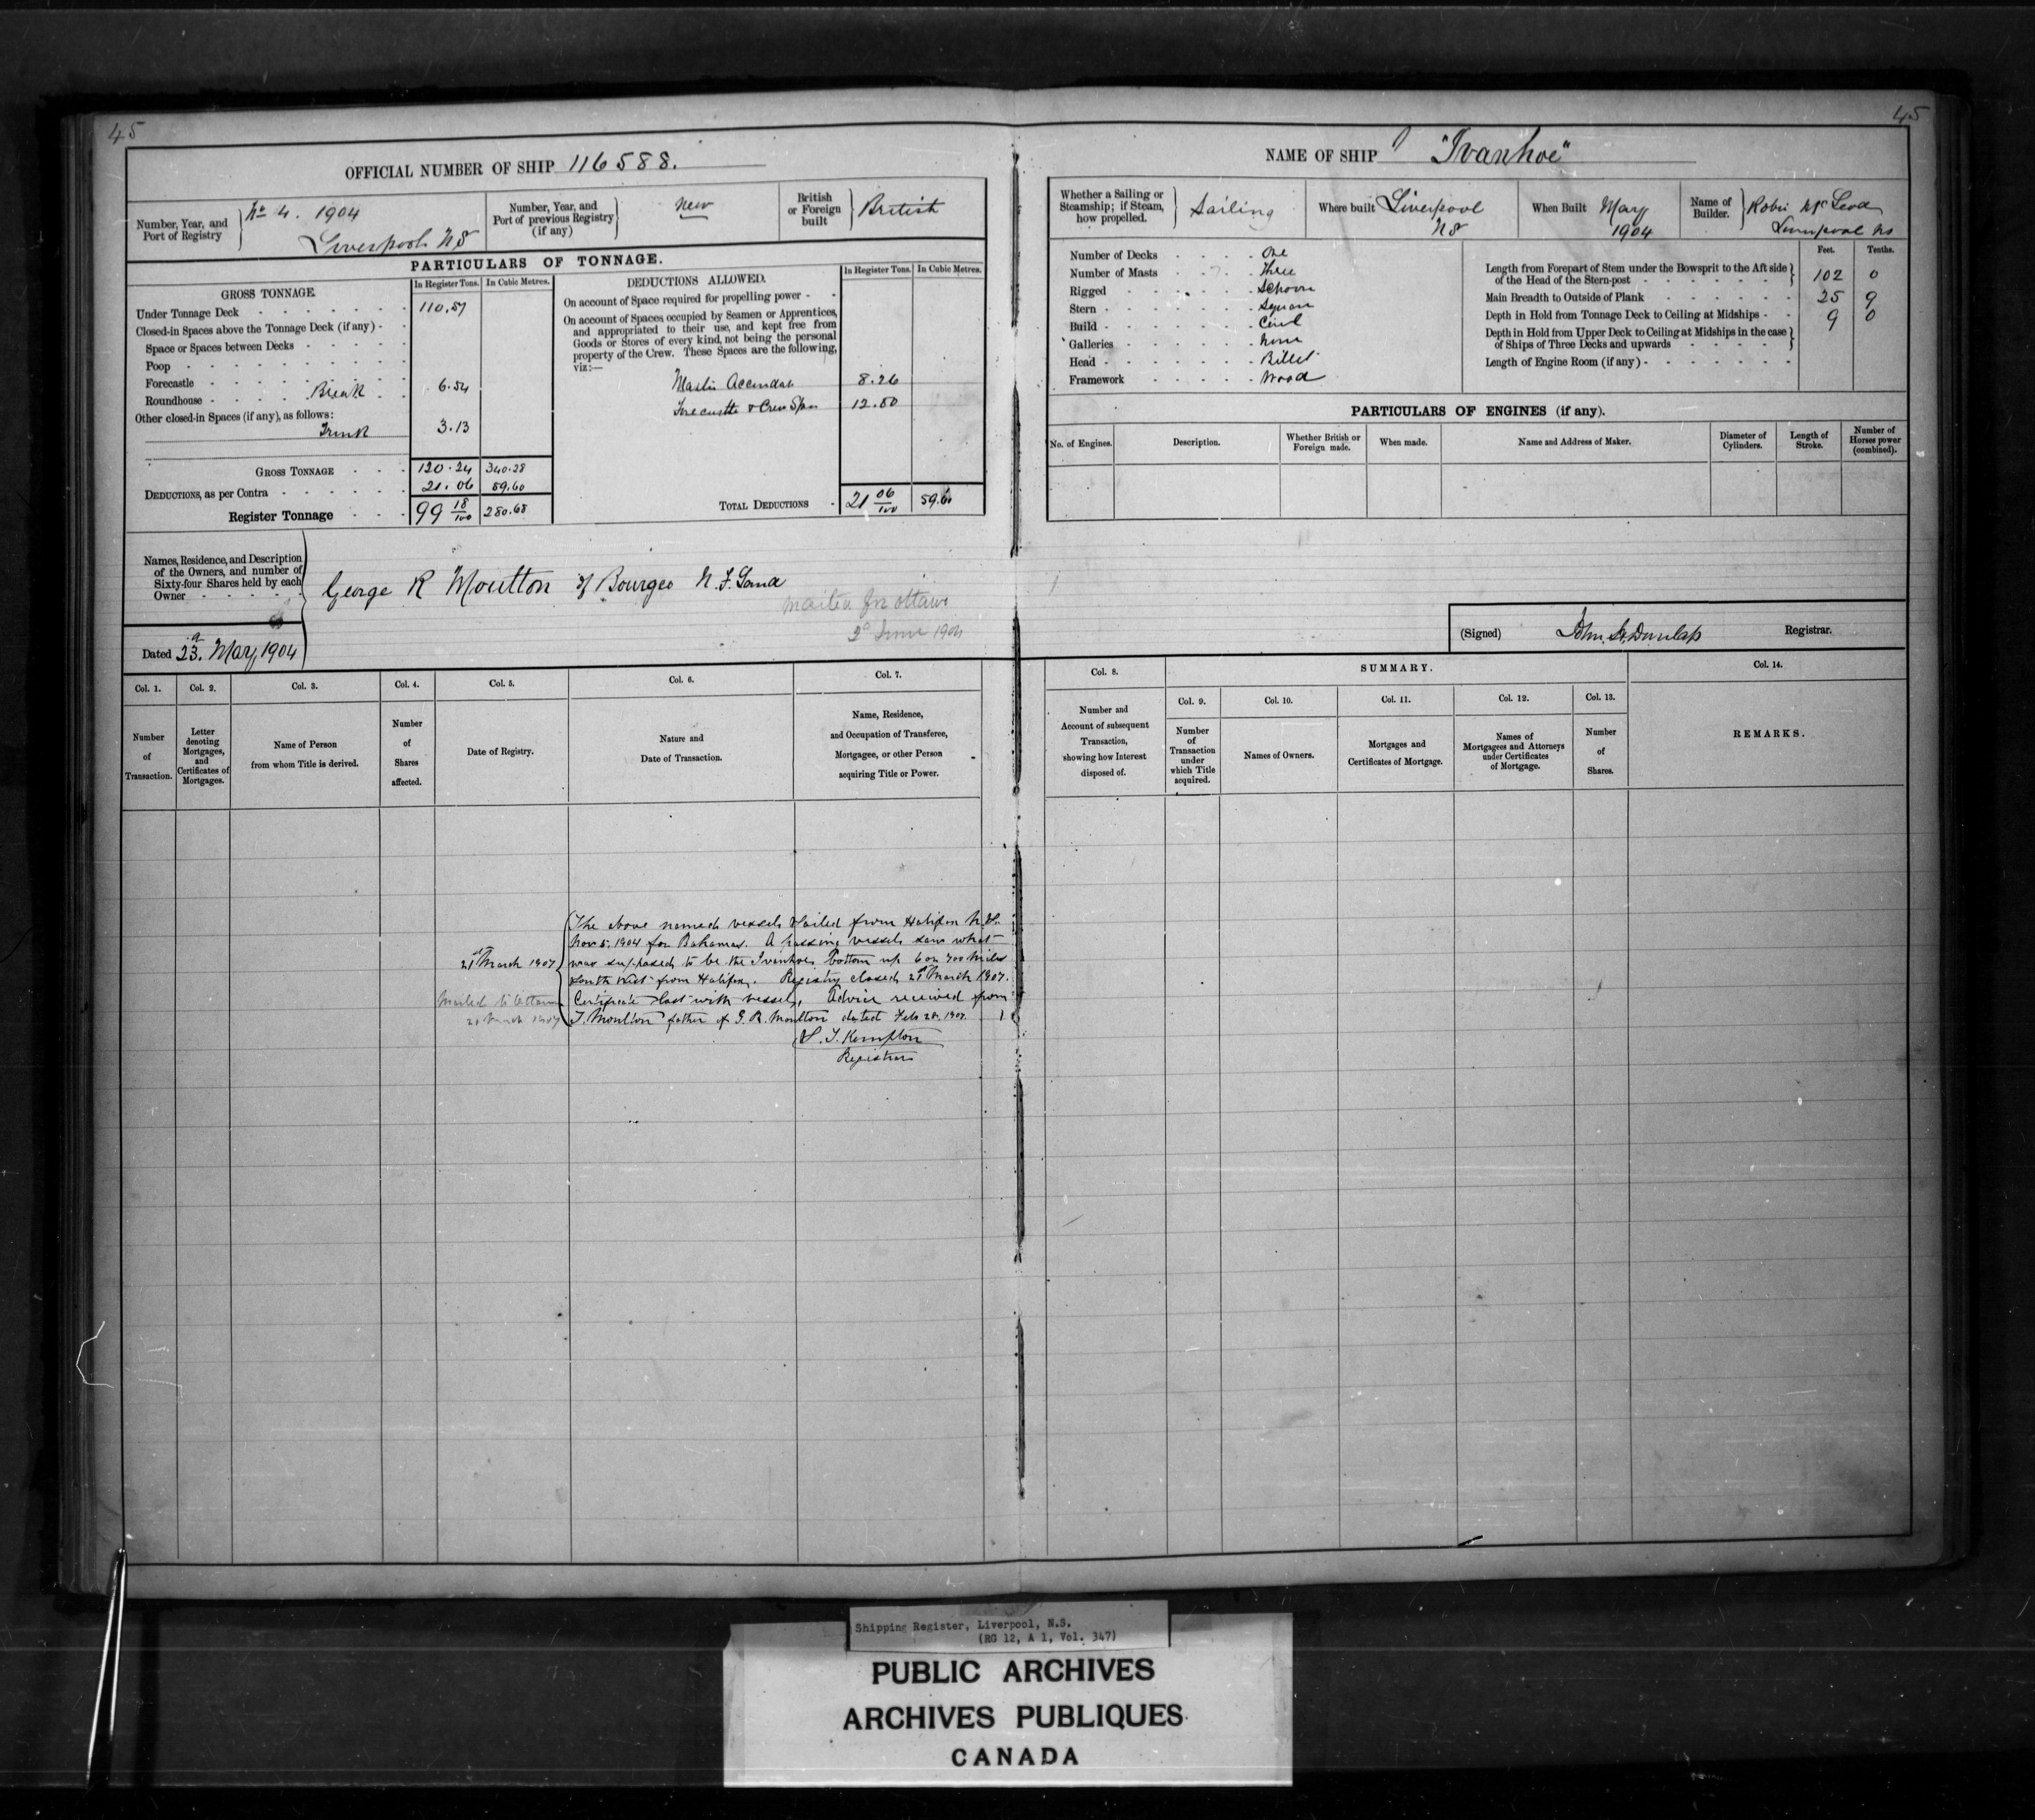 45
45
OFFICIAL NUMBER OF SHIP 116588.
Number, Year, and Port of Registry
No 4. 1904
Liverpool NS
Number, Year, and Port of previous Registry (if any)
New
British or Foreign built
British
PARTICULARS OF TONNAGE.
GROSS TONNAGE.
In Register Tons.
In Cubic Metres.
Under Tonnage Deck 110.57
Closed-in Spaces above the Tonnage Deck (if any)
Space or Spaces between Decks
Poop
Forecastle
Roundhouse Break 6.54
Other closed-in Spaces (if any), as follows:
Trunk 3.13
GROSS TONNAGE 120.24 340.28
DEDUCTIONS, as per Contra 21.06 59.60
Register Tonnage 99 18/100 280.68
DEDUCTIONS ALLOWED.
In Register Tons.
In Cubic Metres.
On account of Space required for propelling power
On account of Spaces occupied by Seamen or Apprentices,
and appropriated to their use, and kept free from
Goods or Stores of every kind, not being the personal
property of the Crew. These Spaces are the following,
viz:—
8.26
Forecastle & Crew 12.80
TOTAL DEDUCTIONS 21 06/100 59.60
Names, Residence, and Description
of the Owners, and number of
Sixty-four Shares held by each
Owner
George R Moulton of Bourgeo N.F.Land
Mailed for Ottawa
2d June 1904
Dated 23d. May, 1904
NAME OF SHIP "Ivanhoe"
Whether a Sailing or Steamship; if Steam, how propelled.
Sailing
Where built Liverpool
NS
When Built May
1904
Name of Builder.
Robie McLeod
Liverpool NS
Number of Decks One
Number of Masts Three
Rigged Schoon
Stern Square
Build
Galleries None
Head Billet
Framework Wood
Feet. Tenths.
Length from Forepart of Stem under the Bowsprit to the Aft side
of the Head of the Stern-post 102 0
Main Breadth to Outside of Plank 25 9
Depth in Hold from Tonnage Deck to Ceiling at Midships 9 0
Depth in Hold from Upper Deck to Ceiling at Midships in the case
of Ships of Three Decks and upwards
Length of Engine Room (if any)
PARTICULARS OF ENGINES (if any).
No. of Engines.
Description.
Whether British or Foreign made.
When made.
Name and Address of Maker.
Diameter of Cylinders.
Length of Stroke.
Number of Horses power (combined).
(Signed) Dunlap Registrar.
Col. 1.
Col. 2.
Col. 3.
Col. 4.
Col. 5.
Col. 6.
Col. 7.
Number of Transaction.
Letter denoting Mortgages, and Certificates of Mortgages.
Name of Person from whom Title is derived.
Number of Shares affected.
Date of Registry.
Nature and Date of Transaction.
Name, Residence, and Occupation of Transferee, Mortgagee, or other Person acquiring Title or Power.
Col. 8.
SUMMARY.
Col. 14.
Col. 9.
Col. 10.
Col. 11.
Col. 12.
Col. 13.
Number and Account of subsequent Transaction, showing how Interest disposed of.
Number of Transaction under which Title acquired.
Names of Owners.
Mortgages and Certificates of Mortgage.
Names of Mortgagees and Attorneys under Certificates of Mortgage.
Number of Shares.
REMARKS.
21st March 1907
Mailed to Ottawa
21 March 1907
The above named vessel sailed from Halifax N.S.
Nov 5, 1904 for Bahamas. A passing vessel saw what
was supposed to be the Ivanhoe bottom up 6 or 700 miles
South East from Halifax. Registry closed 21st March 1907.
Certificate lost with vessel. Advice received from
T. Moulton father of G. R. Moulton dated Feb 28. 1907.
Kempton
Registrar
Shipping Register, Liverpool, N.S.
(RG 12, A 1, Vol. 347)
PUBLIC ARCHIVES
ARCHIVES PUBLIQUES
CANADA